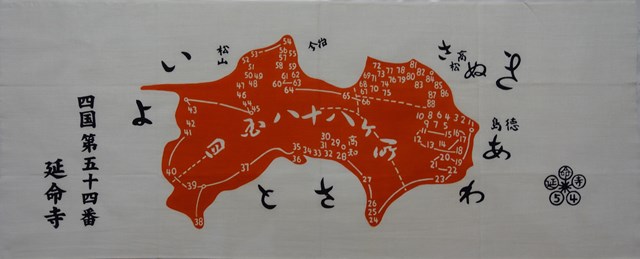 四国八十八ヶ所
いよ
松山
今治
さぬき
高松
徳島
あわ
とさ
高知
四国第五十四番
延命寺
延命寺54
54
52 53
56
57
55
58
59
50 49
51
48
47
46
45
44
61 62
60 63
64
65
66
72 73 77 78 81 82
71 74 76 79 80 84 83
69 70
68
67
75
85 86
87
88
10 8 6 4 3 2 1
9 7 5
11
12
13
14
15 16
17
18
19
20
21
22
23
24
25
26
27
28
29
30
31
32
33
34
35
36
37
38
39
40
41
42
43